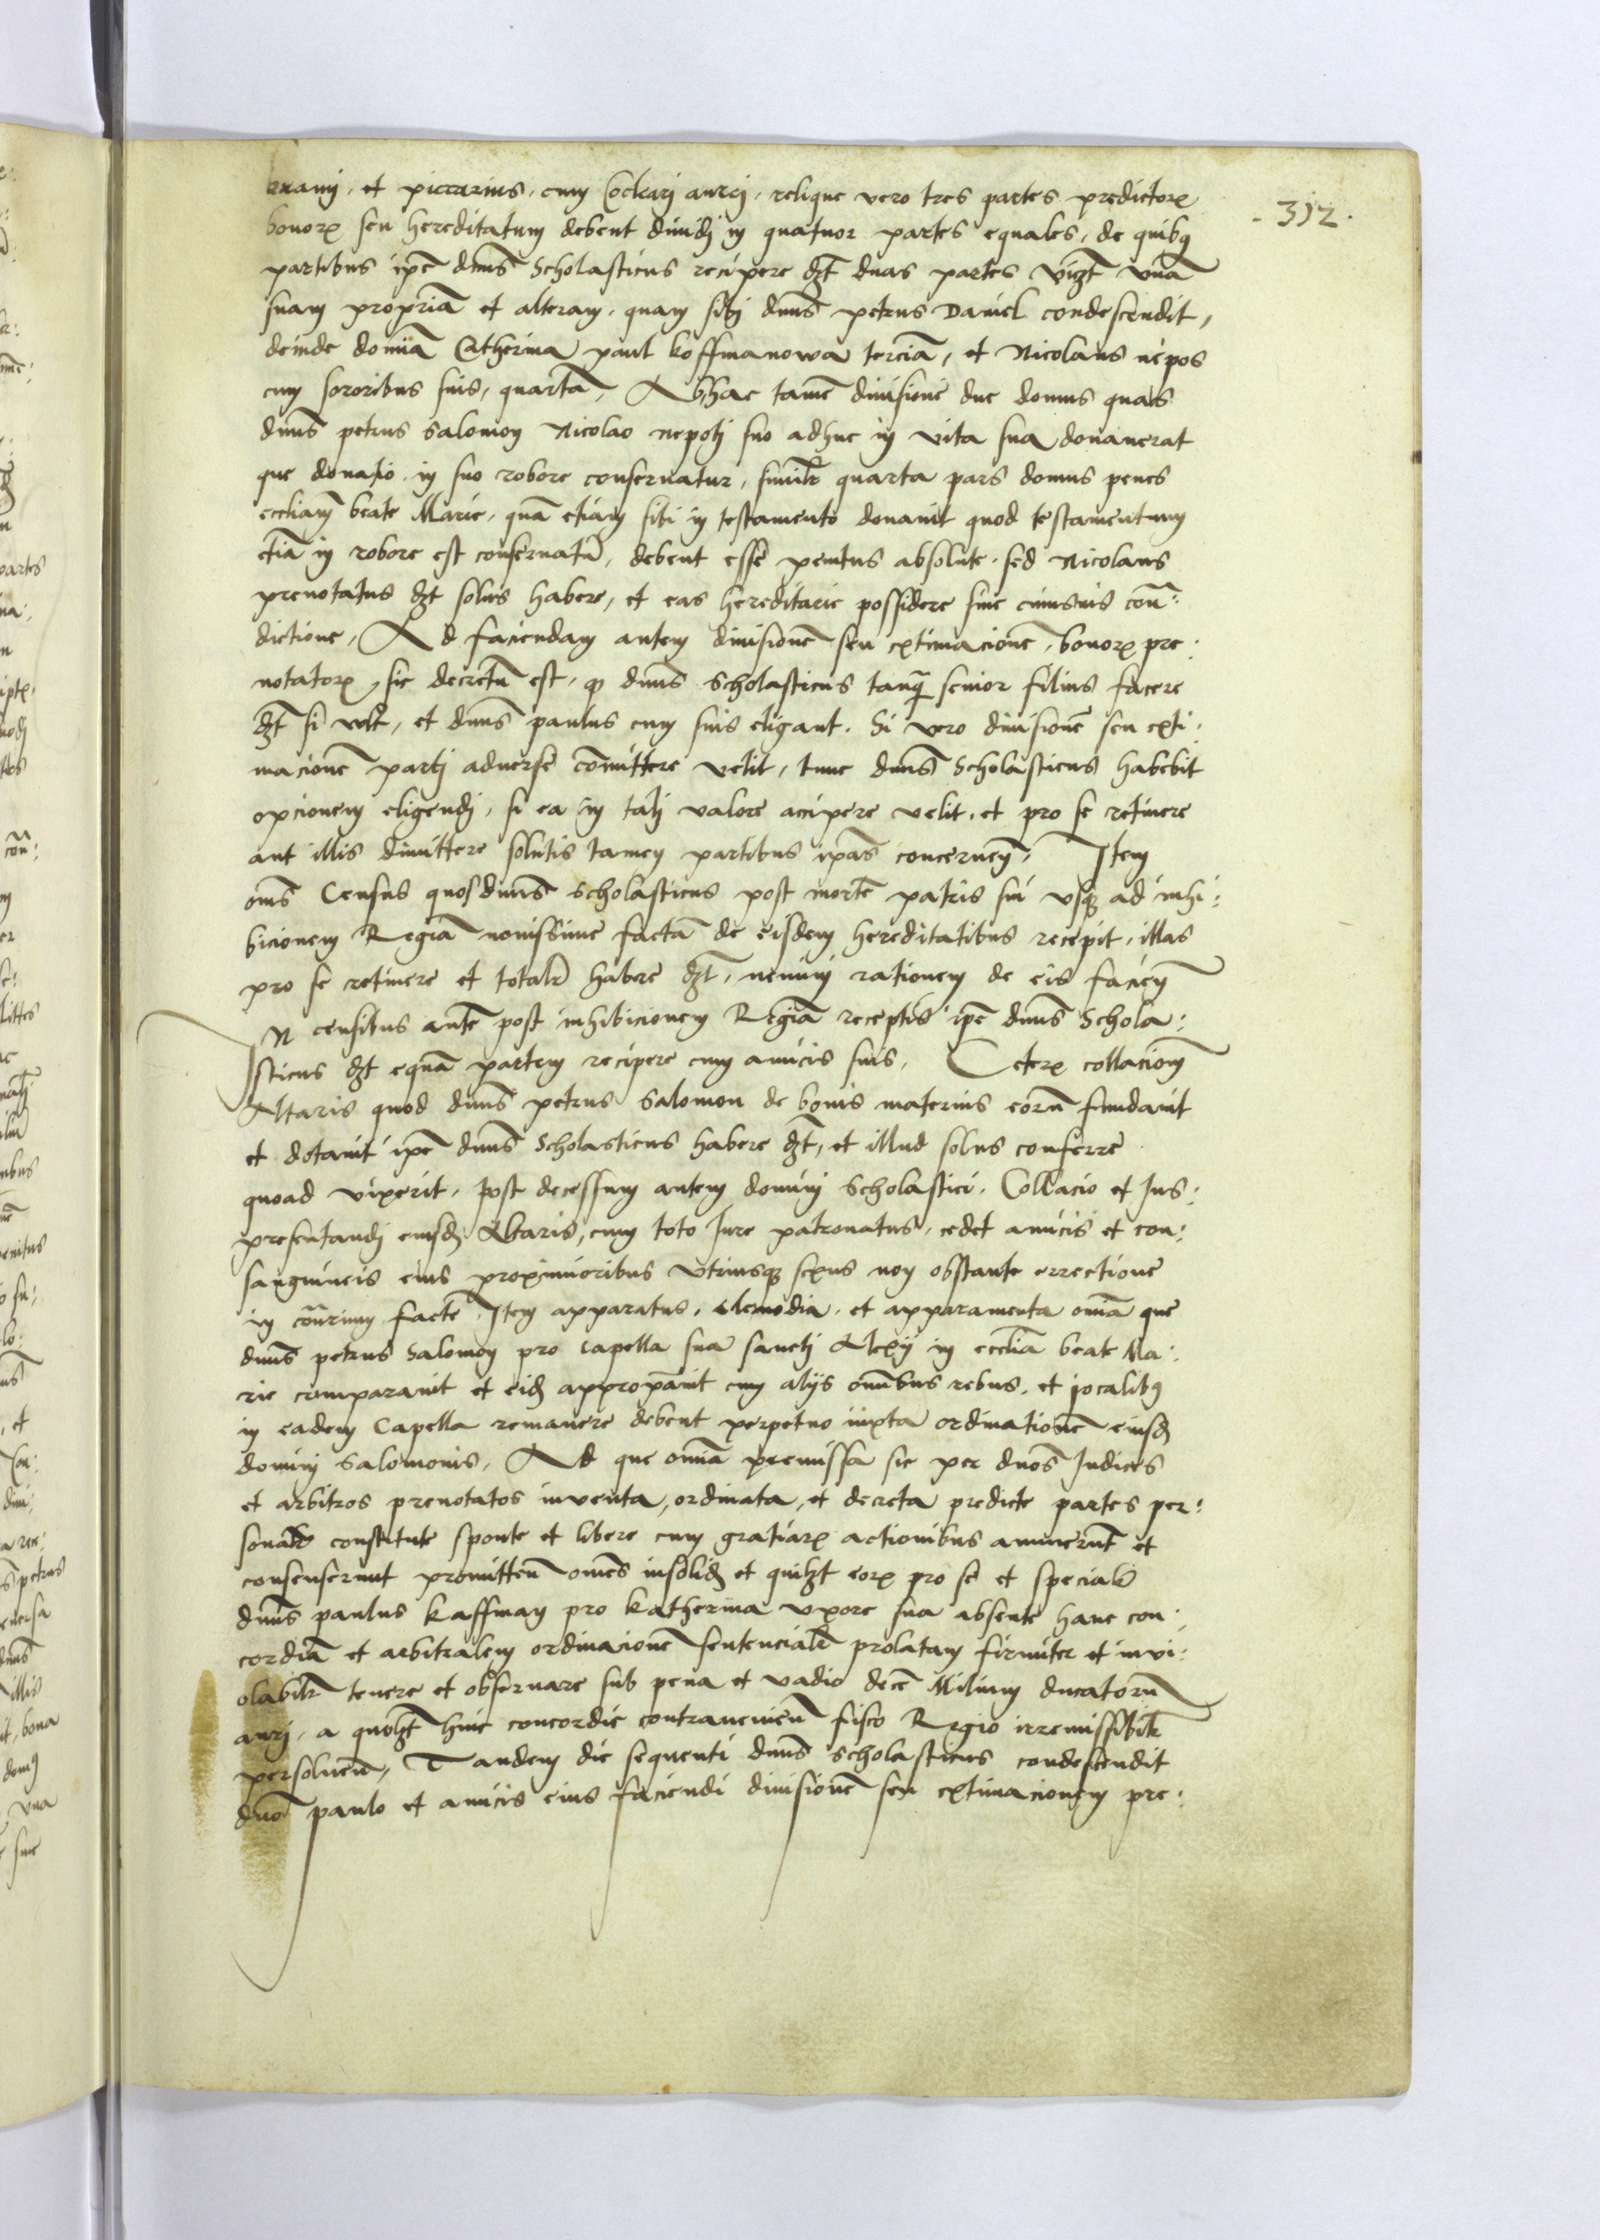 312
et piccarius, cum Coclearj aurej, relique vero tres partes predictoꝝ
bonoꝝ seu hereditatum debent diuidj in quatuor partes equales, de quibꝰ
partibus ip̄e dn̄us Scholasticus recipere dꝫt duas partes vicꝫt vnā
suam propriā et alteram, quam sibj dn̄us petrus Daniel condescendit,
deinde domīa Catherina paul koffmanowa terciā, et Nicolaus nepos
cum sororibus suis, quartā, Ab hac tamē diuisione due domus quas
dn̄us petrus Salomon Nicolao nepotj suo adhuc in vita sua donauerat
que donatio in suo robore conseruatur, similr̄ quarta pars domus penes
eccliam̄ beate Marie, quā etiam sibi in testamento donauit quod testamentum
etiā in robore est conseruatū, debent esse penitus absolute, sed Nicolaus
prenotatus dꝫt solus habere, et eas hereditarie possidere sine cuiusuis con̄:
dictione, Ad faciendam autem diuisionē seu extimacionē, bonoꝝ pre:
notatoꝝ, sic decretū est, ꝙ dn̄us Scholasticus tanꝙ̄ senior filius facere
dꝫt si vult, et dn̄us paulus cum suis eligant. Si vero diuisionē seu exti:
macionē partj aduerse com̄ittere velit, tunc dn̄us Scholasticus habebit
opcionem eligendj, si ea in talj valore accipere velit, et pro se retinere
aut illis dimittere solutis tamen partibus ip̄as concernen̄, Item
om̄s Census quos dn̄us Scholasticus post mortē patris sui vsqꝫ ad inhi:
bicionem Regiā nouissime factā de eisdem hereditatibus recepit, illas
pro se retinere et totalr̄ habere dꝫt, neminj rationem de eis facien̄
IN censibus autē post inhibicionem Regiā receptis ip̄e dn̄us Schola:
sticus dꝫt equā partem recipere cum amicis suis, Ceterꝝ collacionē
Altaris quod dn̄us petrus Salomon de bonis maternis eorū fundauit
et dotauit ip̄e dn̄us Scholasticus habere dꝫt, et illud solus conferre
quoad vixerit, post decessum autem dominj Scholastici, Collacio et Jus:
presentandj eiusdꝫ Altaris, cum toto Jure patronatus, cedet amicis et con:
sanguineis eius proximioribus vtriusqꝫ sexus non obstante errectione
in con̄rium facte Item apparatus, clenodia, et apparamenta om̄ia que
dn̄us petrus Salomon pro Capella sua sanctj Alexij in eccliā beate Ma:
rie comparauit et eidꝫ appropāuit cum alijs om̄ibus rebus, et jocalibꝰ
in eadem Capella remanere debent perpetuo iuxta ordinationē eiusdꝫ
dominj Salomonis, Ad que om̄ia premissa sic per dn̄os Judices
et arbitros prenotatos inuenta, ordinata, et decreta predicte partes per:
sonalr̄ constitute sponte et libere cum gratiaꝝ actionibus annuerūt et
consenserunt promitten̄ om̄es insolidꝫ et quilꝫt eoꝝ pro se et specialr̄
dn̄us paulus kaffman pro katherina vxore sua absente hanc con:
cordiā et arbitralem ordinacionē sentencialr̄ prolatam firmiter et invi:
olabilr̄ tenere et obseruare sub pena et vadio decē Milium ducatorū
aurj, a quolꝫt huic concordie contrauenien̄ fisco Regio irremissibilr̄
persoluen̄, Tandem die sequenti dn̄us Scholasticus condescendit
dn̄o paulo et amicis eius faciendi diuisionē seu extimacionem pre: